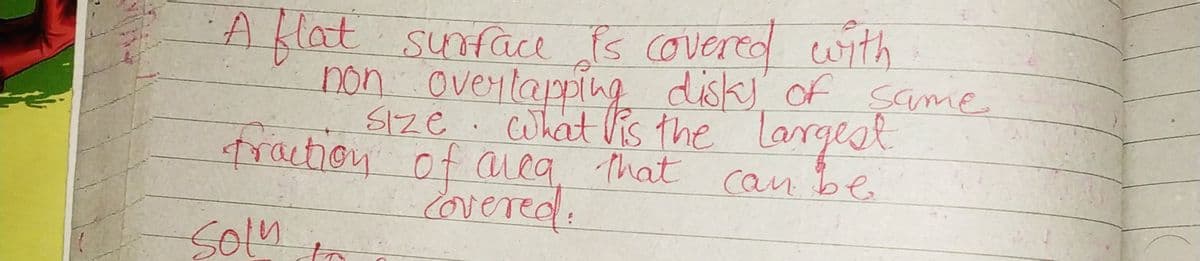 A flat surface is covered with
non overlapping disks of same
size. What is the largest
fraction of area that can be
covered.
Soln